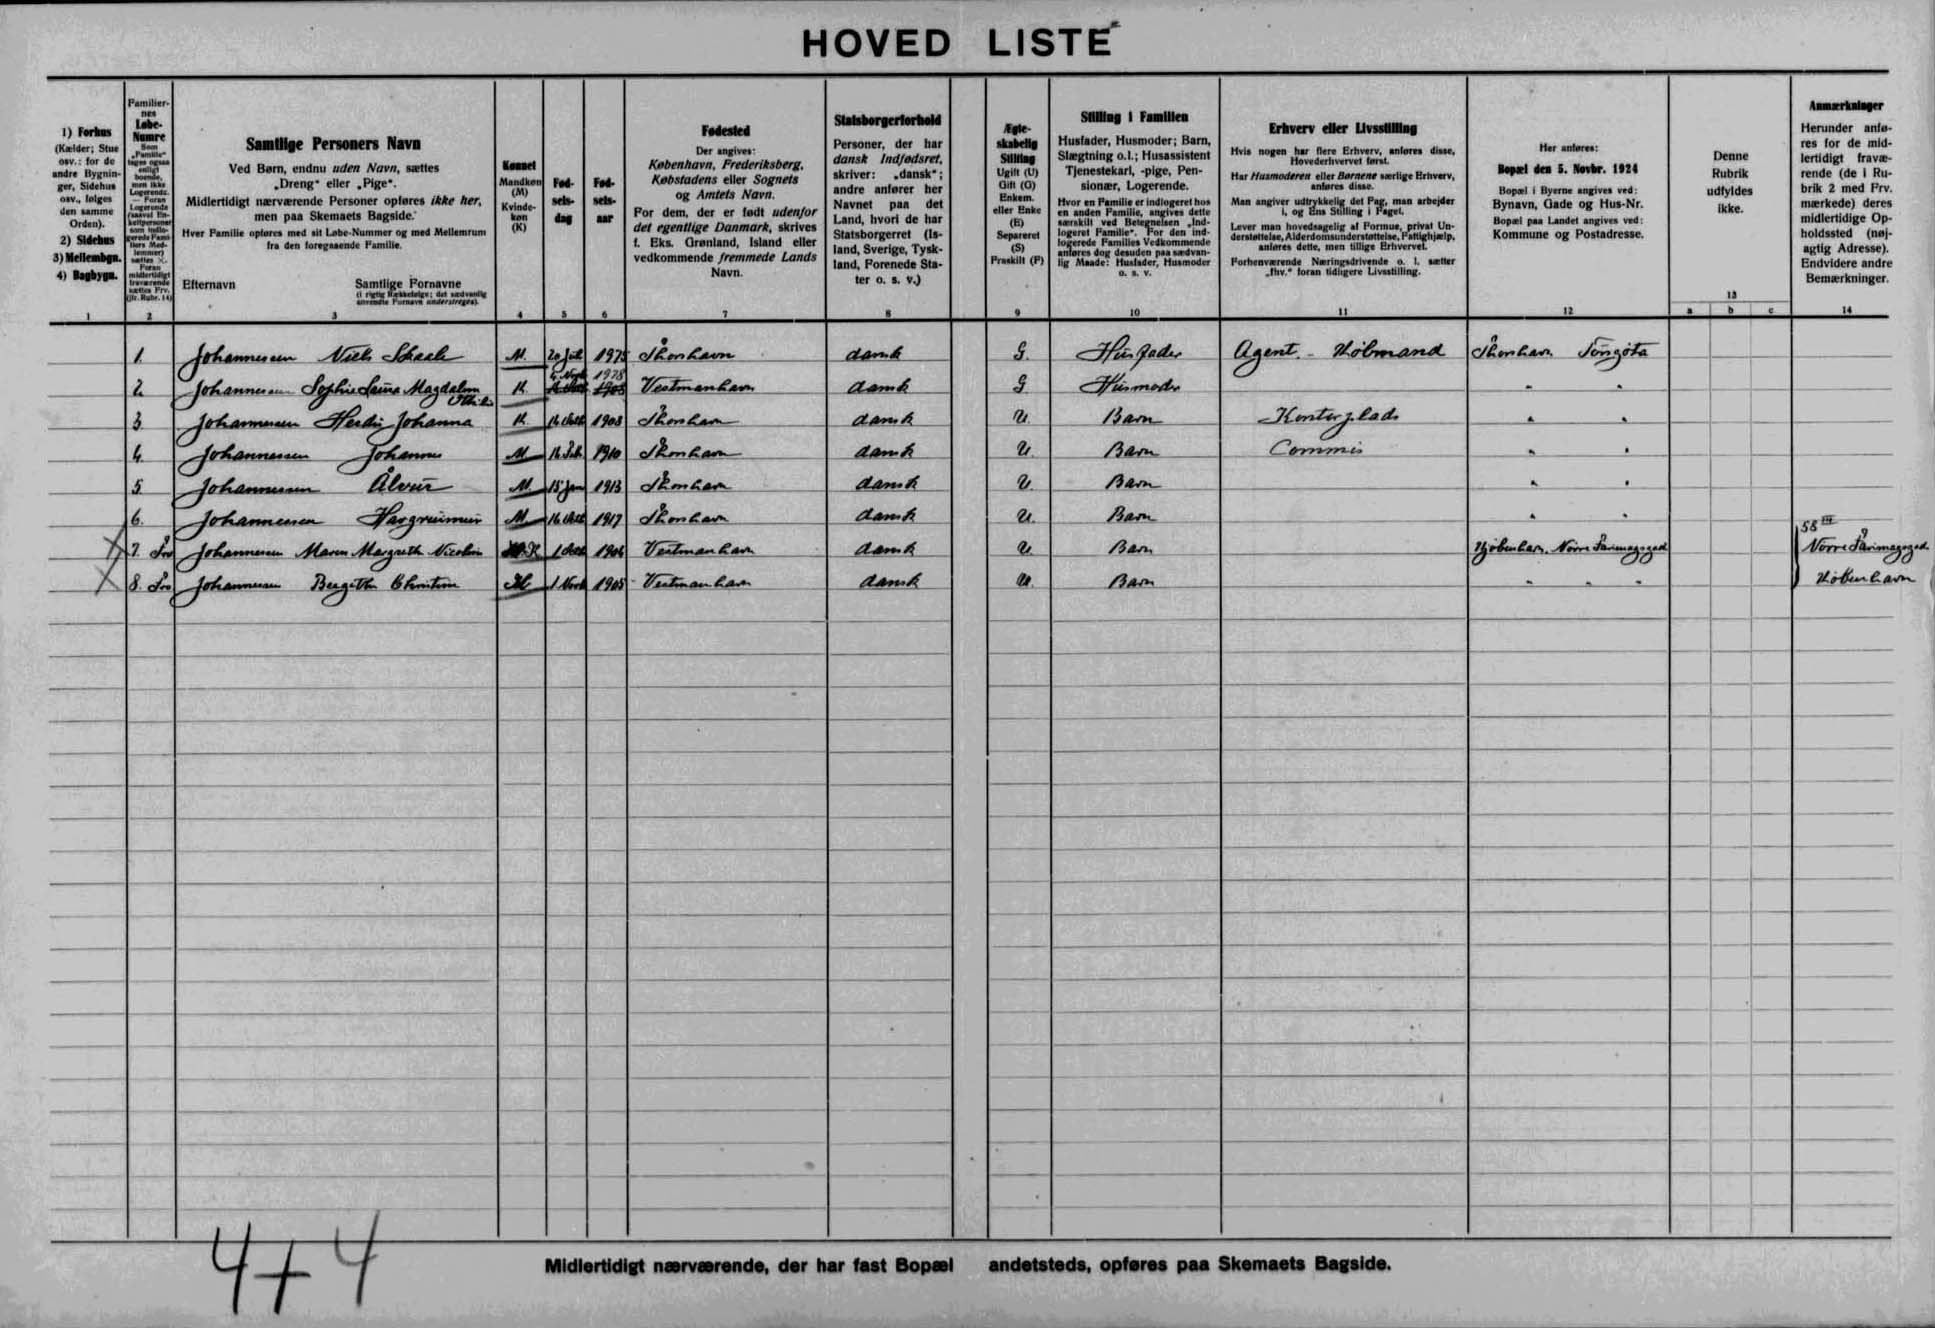 HOVED LISTE
1) Forhus
(Kælder; Stue
osv.: for de
andre Bygnin-
ger, Sidehus
osv., følges
den samme
Orden).
2) Sidehus
3) Mellembgn.
4) Bagbygn.
1
Familier-
nes
Løbe-
Numre
Som
„Familie“
tages ogsaa
enligt
boende,
men ikke
Logerende.
— Foran
Logerende
(saavel En-
keltpersoner
som indlo-
gerede Fami-
liers Med-
lemmer)
sættes ×.
Foran
midlertidigt
fraværende
sættes Frv.
(jfr. Rubr. 14)
2
Samtlige Personers Navn
Ved Børn, endnu uden Navn, sættes
„Dreng“ eller „Pige“.
Midlertidigt nærværende Personer opføres ikke her,
men paa Skemaets Bagside.
Hver Familie opføres med sit Løbe-Nummer og med Mellemrum
fra den foregaaende Familie.
Efternavn Samtlige Fornavne
(i rigtig Rækkefølge; det sædvanlig
anvendte Fornavn understreges).
3
Kønnet
Mandkøn
(M)
Kvinde-
køn
(K)
4
Fød-
sels-
dag
5
Fød-
sels-
aar
6
Fødested
Der angives:
København, Frederiksberg,
Købstadens eller Sognets
og Amtets Navn.
For dem, der er født udenfor
det egentlige Danmark, skrives
f. Eks. Grønland, Island eller
vedkommende fremmede Lands
Navn.
7
Statsborgerforhold
Personer, der har
dansk Indfødsret,
skriver: „dansk“;
andre anfører her
Navnet paa det
Land, hvori de har
Statsborgerret (Is-
land, Sverige, Tysk-
land, Forenede Sta-
ter o. s. v.)
8
Ægte-
skabelig
Stilling
Ugift (U)
Gift (G)
Enkem.
eller Enke
(E)
Separeret
(S)
Fraskilt (F)
9
Stilling i Familien
Husfader, Husmoder; Barn,
Slægtning o.l.; Husassistent
Tjenestekarl, -pige, Pen-
sionær, Logerende.
Hvor en Familie er indlogeret hos
en anden Familie, angives dette
særskilt ved Betegnelsen „Ind-
logeret Familie“. For den ind-
logerede Families Vedkommende
anføres dog desuden paa sædvan-
lig Maade: Husfader, Husmoder
o. s. v.
10
Erhverv eller Livsstilling
Hvis nogen har flere Erhverv, anføres disse,
Hovederhvervet først.
Har Husmoderen eller Børnene særlige Erhverv,
anføres disse.
Man angiver udtrykkelig det Fag, man arbejder
i, og Ens Stilling i Faget.
Lever man hovedsagelig af Formue, privat Un-
derstøttelse, Alderdomsunderstøttelse, Fattighjælp,
anføres dette, men tillige Erhvervet.
Forhenværende Næringsdrivende o. l. sætter
„fhv.“ foran tidligere Livsstilling.
11
Her anføres:
Bopæl den 5. Novbr. 1924
Bopæl i Byerne angives ved:
Bynavn, Gade og Hus-Nr.
Bopæl paa Landet angives ved:
Kommune og Postadresse.
12
Denne
Rubrik
udfyldes
ikke.
13
a b c
Anmærkninger
Herunder anfø-
res for de mid-
lertidigt fravæ-
rende (de i Ru-
brik 2 med Frv.
mærkede) deres
midlertidige Op-
holdssted (nøj-
agtig Adresse).
Endvidere andre
Bemærkninger.
14
1. Johannessen Niels Skaale M. 20 Juli 1875 Thorshavn dansk G. Husfader Agent - Købmand Thorshavn Tórsgøta
2. Johannessen Sophie Laura Magdalena K. 1878 Vestmanhavn dansk G Husmoder " "
3 Johannessen Herdis Johanna K. 16 1908 Thorshavn dansk U. Barn Kontorplads " "
4. Johannessen Johannes M 16 Feb. 1910 Thorshavn dansk U. Barn Commis " "
5. Johannessen Álvur M. 15 Jan 1913 Thorshavn dansk U. Barn " "
6. Johannessen M 16 1917 Thorshavn dansk U. Barn " "
7. Frv Johannessen Maren Margreth Nicolina K 1 1906 Vestmanhavn dansk U Barn København. Nørre Farimagsgad 58 III Nørre Farimagsgad
8. Frv Johannessen 1 Novb 1905 Vestmanhavn dansk U. Barn " " " København
4+4
Midlertidigt nærværende, der har fast Bopæl andetsteds, opføres paa Skemaets Bagside.